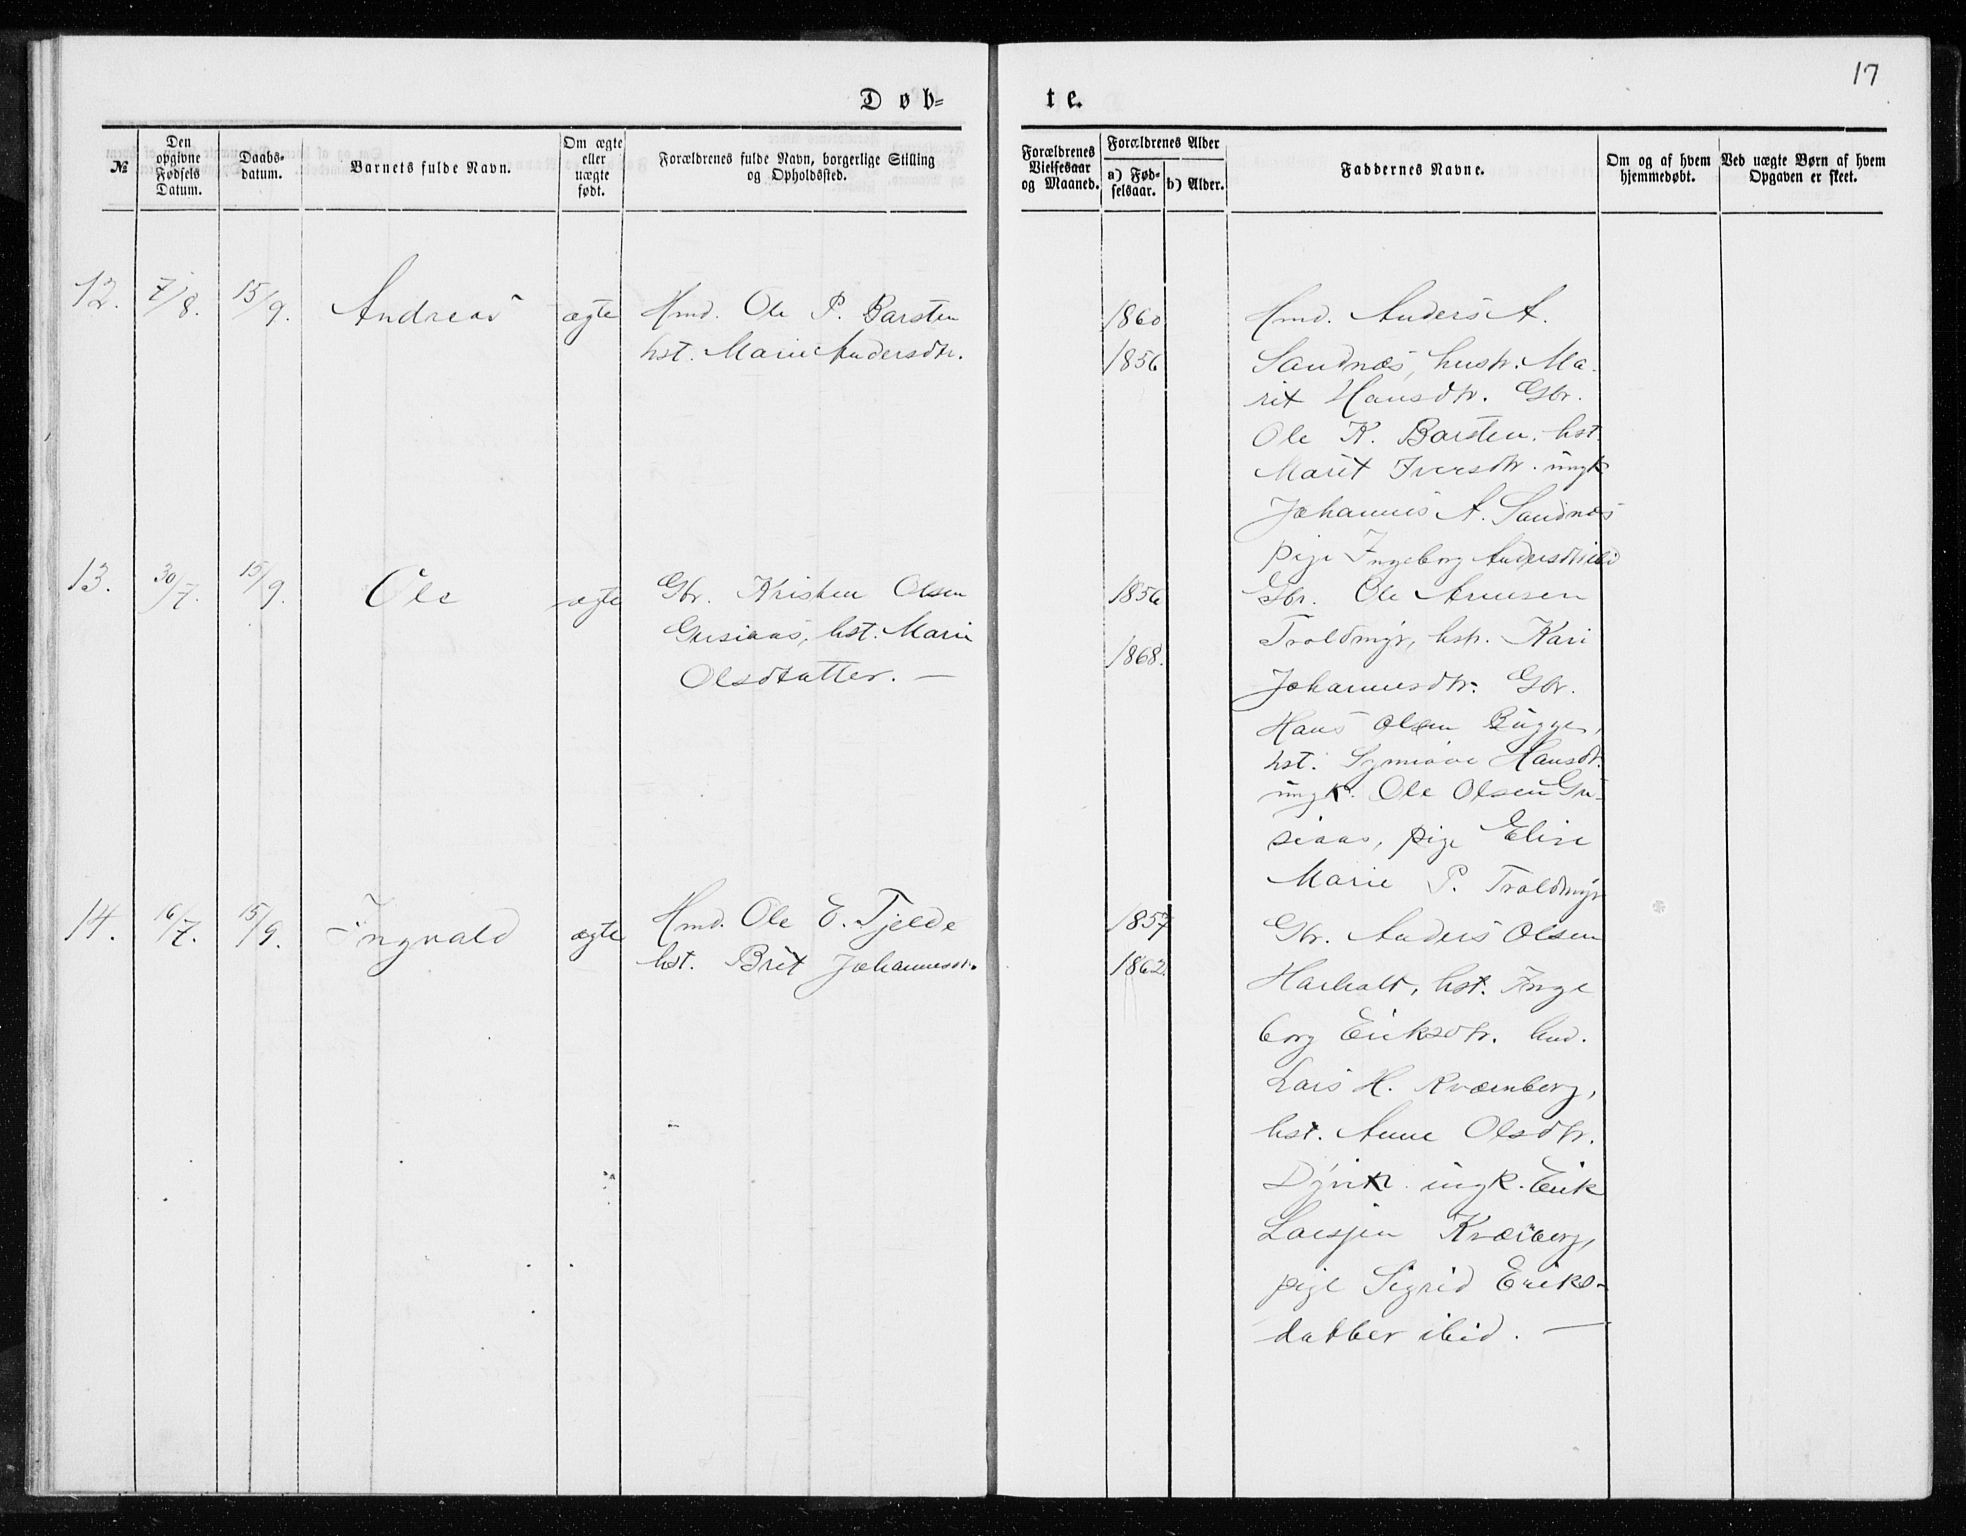 17
Døb=
te.
№
Den opgivne Fødsels Datum.
Daabs-datum.
Barnets fulde Navn.
Om ægte eller uægte født.
Forældrenes fulde Navn, borgerlige Stilling og Opholdssted.
Forældrenes Vielsesaar og Maaned.
Forældrenes Alder
a) Fødselsaar.
b) Alder.
Faddernes Navne.
Om og af hvem hjemmedøbt.
Ved uægte Børn af hvem Opgaven er skeet.
12. 7/8. 15/9. Andreas ægte
Hmd. Ole P. Barsten
hst. Marie Andersdtr.
1860
1856
Hmd. Anders A.
Sandnæs, hustr. Ma-
rit Hansdtr. Gbr.
Ole K. Barsten. hst.
Marit Iversdtr. ungk.
Johannes A. Sandnæs
pige Ingeborg Andersdtr ibid
13. 30/7. 15/9. Ole ægte
Gbr. Kristen Olsen
Gusiaas, hst. Marie
Olsdtatter. —
1856
1868.
Gbr. Ole Arnesen
Troldmyr, hstr. Kari
Johannesdtr. Gbr.
Hans Olsen Bugge,
hst. Synnøve Hansdtr.
ungk. Ole Olsen Gu-
siaas, pige Eline
Marie P. Troldmyr
14. 16/7. 15/9. Ingvald ægte
Hmd. Ole E. Tjelde
hst. Brit Johannesdtr.
1857
1862.
Gbr. Anders Olsen
hst. Inge
borg Eriksdtr. hmd.
Lars H. Kværnberg,
hst. Anne Olsdtr.
ungk. Erik
Larsen Kværberg,
pige Sigrid Eriks-
datter ibid. —